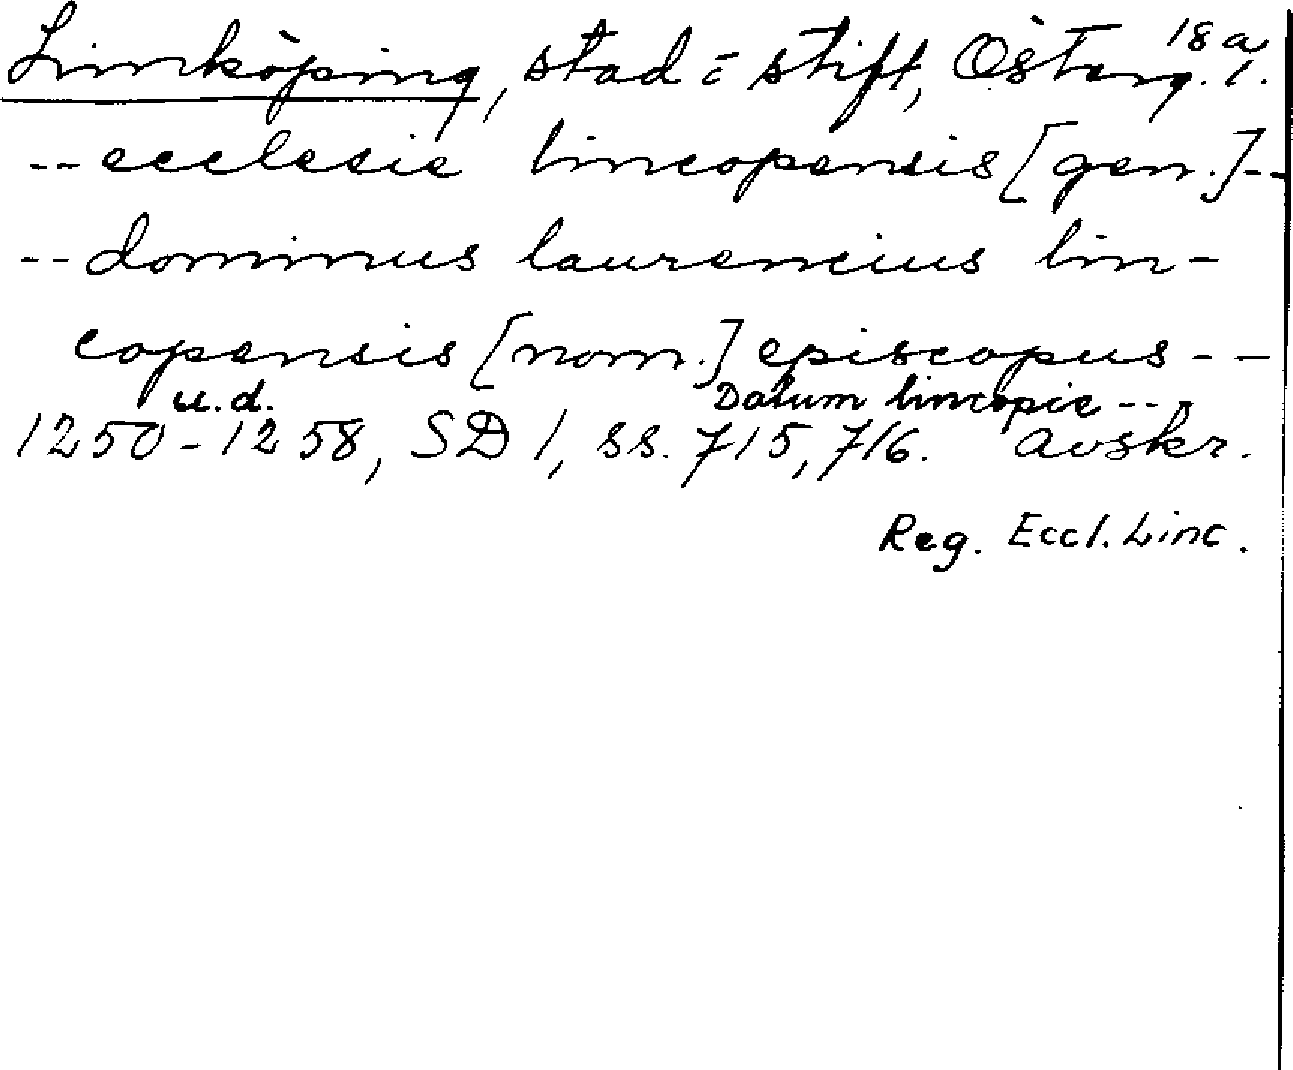 18 a
Linköping, stad o stift, Österg. l.
--ecclesie lincopensis [gen.]--
--dominus laurencius lin-
copensis [nom.] episcopus--
u.d. Datum lincopie--
1250-1258, SD 1, ss. 715, 716. Avskr.
Reg. Eccl. Linc.